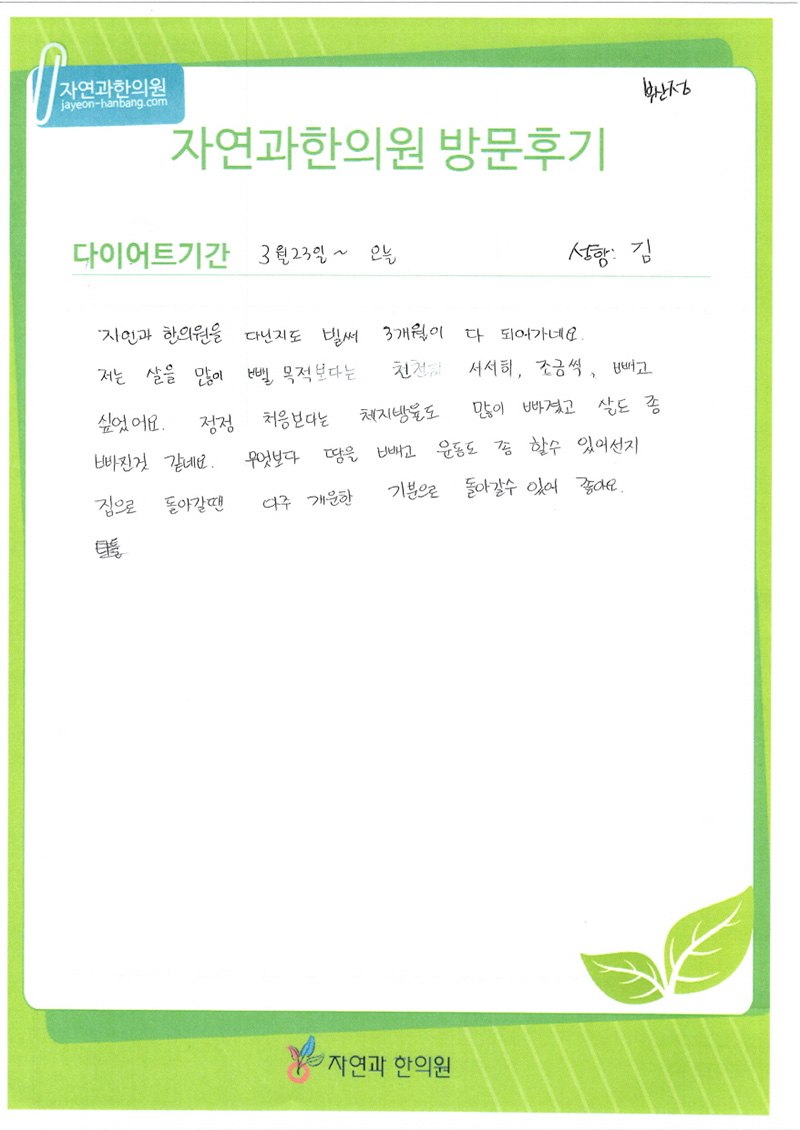 자연과한의원
jayeon-hanbang.com
부산점
자연과한의원 방문후기
다이어트기간 3월23일 ~ 오늘 성함: 김
자연과 한의원을 다닌지도 벌써 3개월이 다 되어가네요.
저는 살을 많이 뺄 목적보다는 천천히 서서히, 조금씩, 빼고
싶었어요. 점점 처음보다는 체지방율도 많이 빠졌고 살도 좀
빠진것 같네요. 무엇보다 땀을 빼고 운동도 좀 할수 있어선지
집으로 돌아갈땐 아주 개운한 기분으로 돌아갈수 있어 좋아요.
자연과 한의원